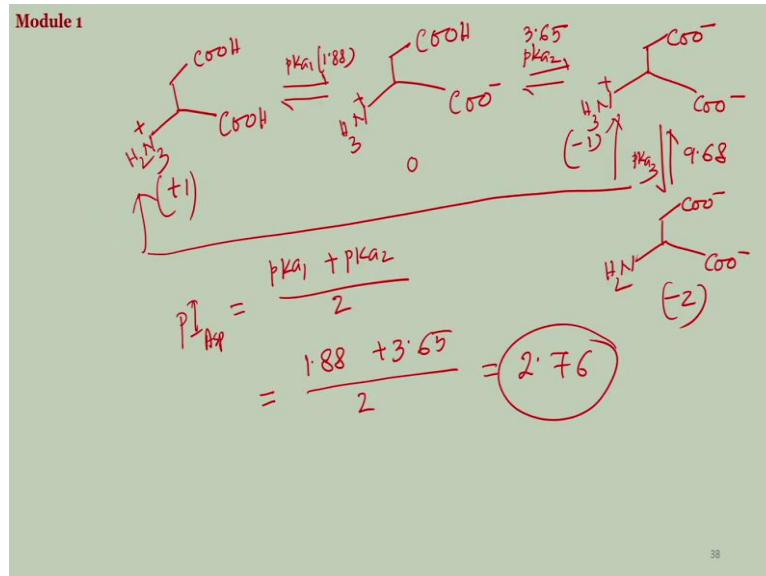 Module 1
COOH
COOH
H₃N⁺
(+1)
pKa₁ (1.88)
COOH
COO⁻
H₃N⁺
0
3.65
pKa₂
COO⁻
COO⁻
H₃N⁺
(-1)
pKa₃
9.68
COO⁻
COO⁻
H₂N
(-2)
pI Asp = pKa₁ + pKa₂
2
= 1.88 + 3.65
2
= 2.76
38